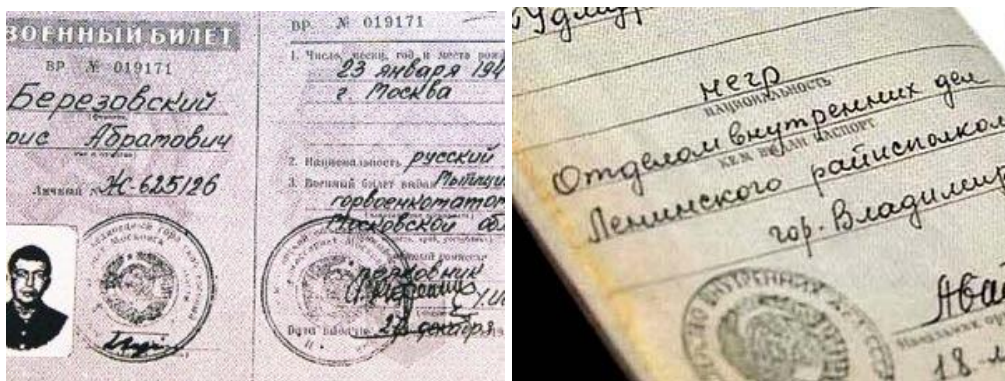 ВОЕННЫЙ БИЛЕТ
ВР № 019171
Березовский
рис Абрамович
Личный № Ж-625126
ВР. № 019171
1. Число, месяц, год и место рож
23 января 194
г. Москва
2. Национальность русский
3. Военный билет выдан Мытищи
горвоенкоматом
Московской обл
полковник
Дата выдачи 27 октября
Удмур
негр
НАЦИОНАЛЬНОСТЬ
Отделом внутренних дел
КЕМ ВЫДАН ПАСПОРТ
Ленинского райисполком
гор. Владимир
ВНУТРЕННИХ
18